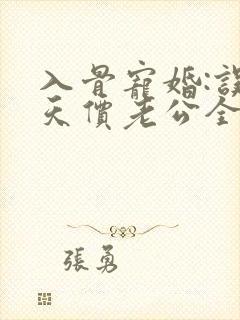 入骨寵婚:誤
天價老公全
張勇